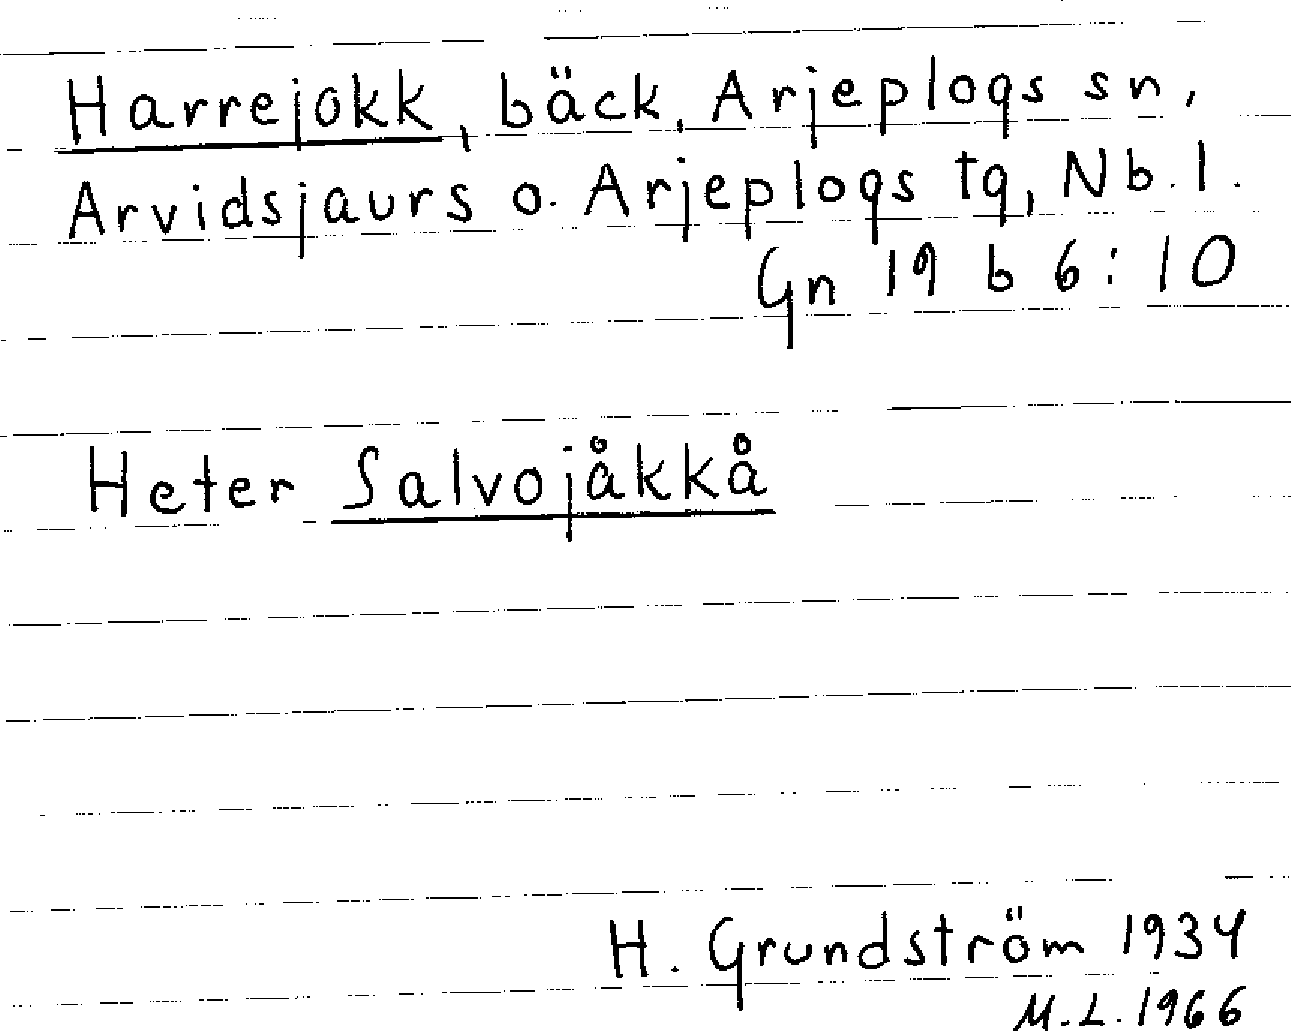 Harrejokk, bäck, Arjeplogs sn,
Arvidsjaurs o. Arjeplogs tg, Nb. l.
Gn 19 b 6:10
Heter Salvojåkkå
H. Grundström 1934
M.L. 1966